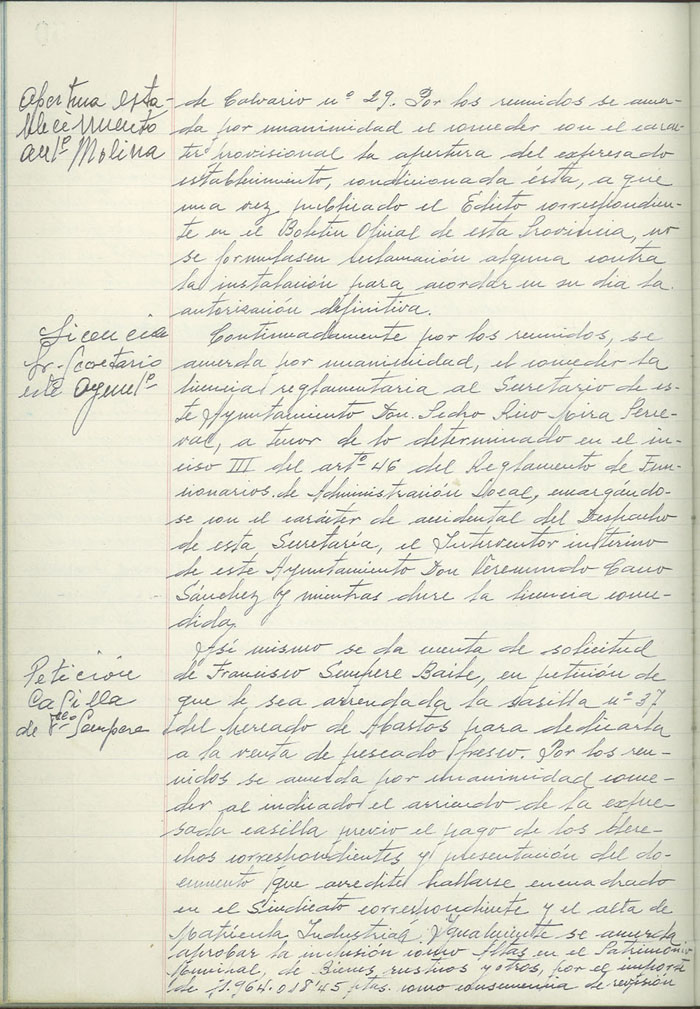 Apertura esta-
blecimiento
Antº Molina
de Calvario nº 29. Por los reunidos se acuer-
da por unanimidad el conceder con el carac-
ter provisional la apertura del expresado
establecimiento, condicionada ésta, a que
una vez publicado el Edicto correspondien-
te en el Boletin Oficial de esta Provincia, no
se formulasen reclamación alguna contra
la instalación para acordar en su dia la
autorización definitiva.
Licencia
Sr. Scretario
este Ayuntº
Continuadamente por los reunidos, se
acuerda por unanimidad, el conceder la
licencia reglamentaria al Secretario de es-
te Ayuntamiento Don Pedro Rico
a tenor de lo determinado en el in-
ciso III del artº 46 del Reglamento de Fun-
cionarios de Administración Local, encargándo-
se con el carácter de accidental del Despacho
de esta Secretaría, el Interventor interino
de este Ayuntamiento Don Veremundo Cano
Sánchez y mientras dure la licencia conce-
dida.
Petición
Casilla
de Fcº Sempere
Así mismo se da cuenta de solicitud
de Francisco Sempere Baile, en petición de
que le sea arrendada la casilla nº 37
del Mercado de Abastos para dedicarla
a la venta de pescado fresco. Por los reu-
nidos se acuerda por unanimidad conce-
der al indicado el arriendo de la expre-
sada casilla previo el pago de los dere-
chos correspondientes y presentación del do-
cumento que acredite hallarse encuadrado
en el Sindicato correspondiente y el alta de
Matricula Industrial. Igualmente se acuerda
aprobar la inclusión como Altas en el Patrimonio
Municipal, de Bienes rusticos y otros, por el importe
de 1.964.018'45 ptas. como consecuencia de revisión